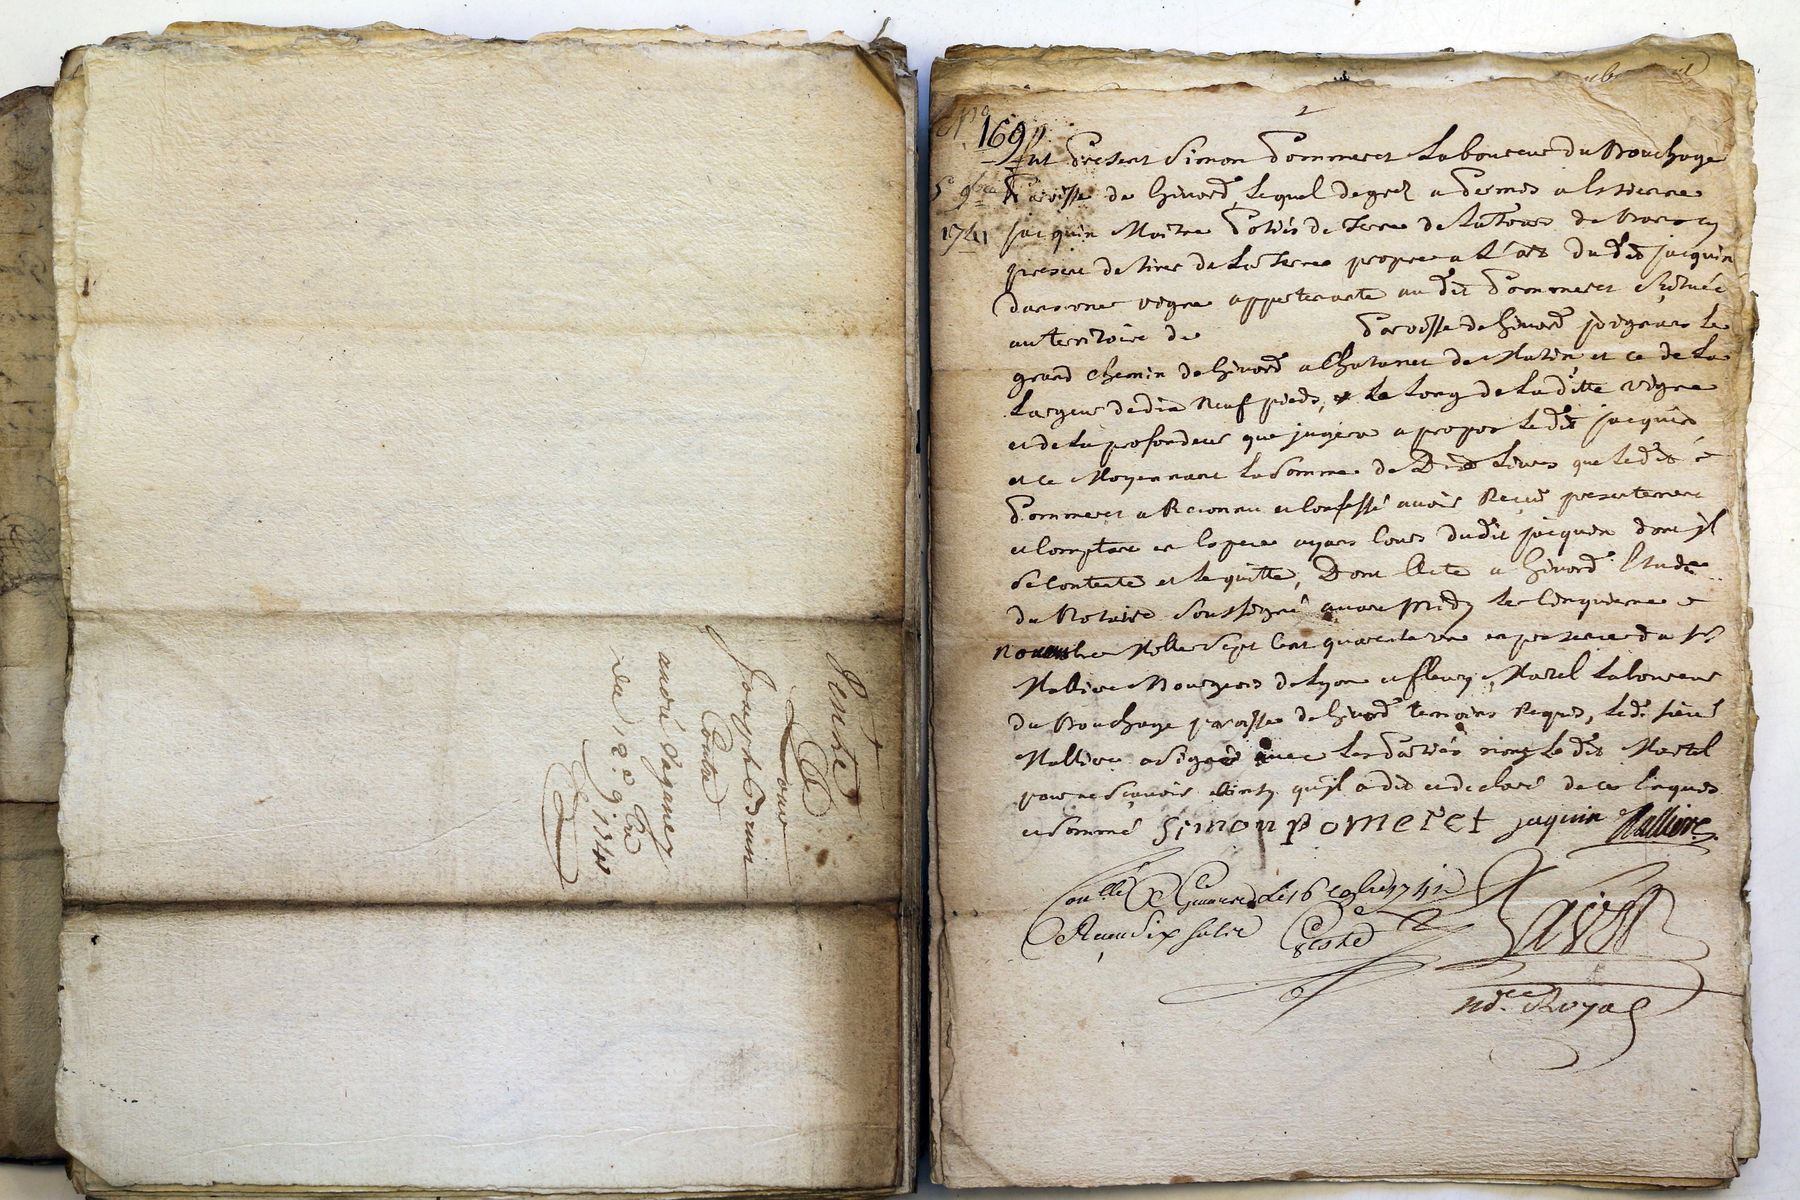 Vente
Pour
Joseph Brun
Contre
andré Pagney
du 12e 9bre
1741
169
5 9bre
1741
fut Present Simon Pommeret Laboureur du Bouchage
Paroisse de Givord, Lequel de gré a Permis a Estienne
jacquin Maitre Potier de Terre de
present de tirer de La Terre propre a L'art du dit jacquin
dans une vigne appartenante au dit Pommeret Scituée
au territoire de Paroisse de Givord joignant le
grand chemin de Givord a de Matin et ce de La
Largeur de dix Neuf pieds, Le Long de La ditte vigne
et de La profondeur que jugera a propos Le dit jacquin
et ce Moyennant La Somme de Dix Livres que Le dit
Pommeret a Reconnu et Confessé avoir Receu presentement
et Comptant en Espece ayant Cours du dit jacquin dont jl
Se Contente et Le quitte, Dont Acte a Givord Etude
du Notaire Soussigné avant Midy Le Cinquieme
Novembre Mille Sept Cent quarante un en presence du Sr
Mallivre Bourgeois de Lyon et fleury Morel Laboureur
du Bouchage paroisse de Givord temoins Requis, Le dt sieur
Mallivre a Signé avec Les Parties non Le dit Morel
pour ne Sçavoir ainsy qu'jl a dit et declaré de ce Enquis
et Sommé Simon pomeret jaquin Mallivre
Conllé A Givord Le 16 9bre 1741
Receu dix solz
nore Royal